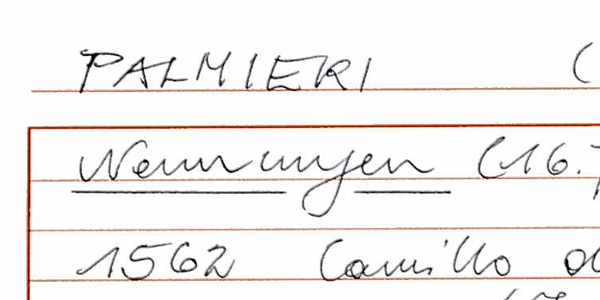 PALMIERI (
Nennungen (16.
1562 Camillo d